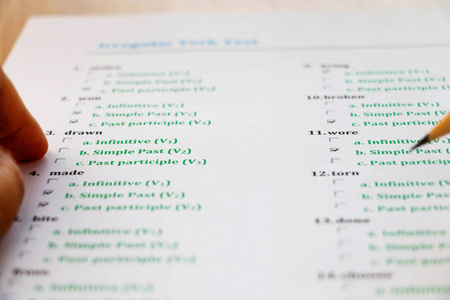 Irregular Verb Test
a. Infinitive (V1)
b. Simple Past (V2)
c. Past participle (V3)
2. won
a. Infinitive (V1)
b. Simple Past (V2)
c. Past participle (V3)
3. drawn
a. Infinitive (V1)
b. Simple Past (V2)
c. Past participle (V3)
4. made
a. Infinitive (V1)
b. Simple Past (V2)
c. Past participle (V3)
bite
a. Infinitive (V1)
b. Simple Past (V2)
c. Past participle (V3)
bring
a. Infinitive
b. Simple Past
c. Past participle
10. broken
a. Infinitive (V1)
b. Simple Past (V2)
c. Past participle
11. wore
a. Infinitive (V1)
b. Simple Past
c. Past participle (V3)
12. torn
a. Infinitive (V1)
b. Simple Past (V2)
c. Past participle
13. done
a. Infinitive (V1)
b. Simple Past
c. Past participle